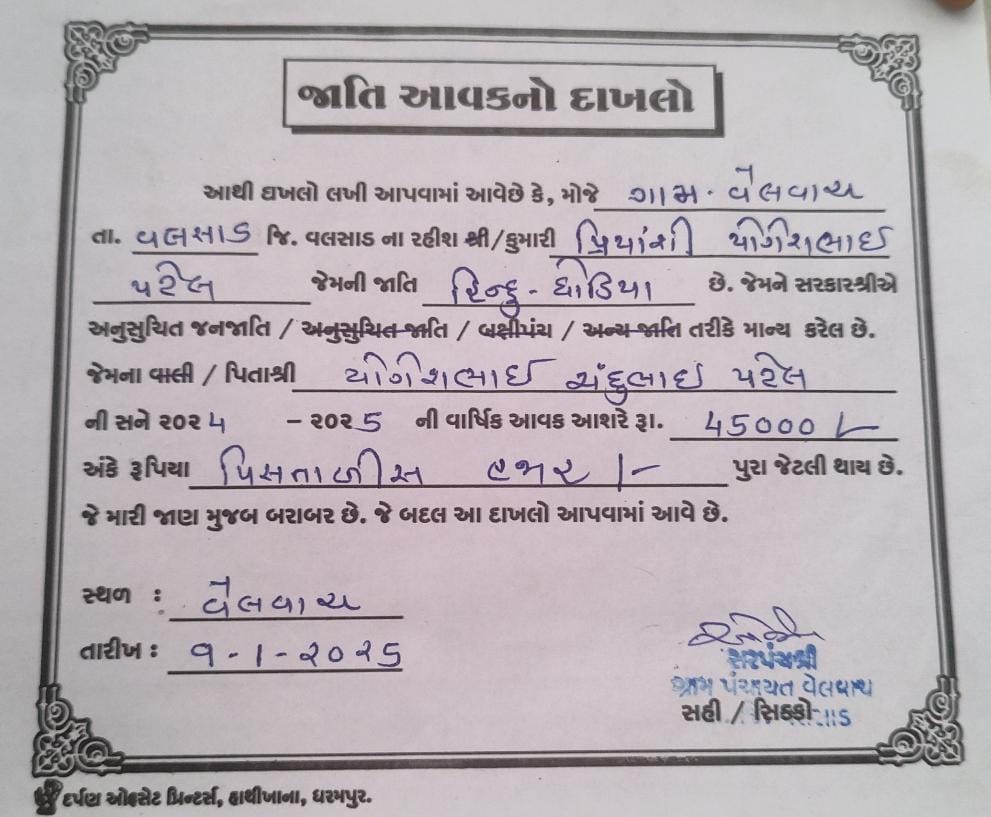 જાતિ આવકનો દાખલો
આથી દાખલો લખી આપવામાં આવેછે કે, મોજે ગામ. વેલવાચ
તા. વલસાડ જિ. વલસાડ ના રહીશ શ્રી/કુમારી પ્રિયાંશી યોગેશભાઈ
પટેલ જેમની જાતિ હિન્દુ - ધોડિયા છે. જેમને સરકારશ્રીએ
અનુસુચિત જનજાતિ / અનુસુચિત જાતિ / બક્ષીપંચ / અન્ય જાતિ તરીકે માન્ય કરેલ છે.
જેમના વાલી / પિતાશ્રી યોગેશભાઈ ચંદુભાઈ પટેલ
ની સને ૨૦૨4 - ૨૦૨5 ની વાર્ષિક આવક આશરે રૂા. 45000/-
અંકે રૂપિયા પિસતાળીસ હજાર /- પુરા જેટલી થાય છે.
જે મારી જાણ મુજબ બરાબર છે. જે બદલ આ દાખલો આપવામાં આવે છે.
સ્થળ : વેલવાચ
તારીખ : ૧-1-૨૦૨5
સરપંચશ્રી
ગ્રામ પંચાયત વેલવાચ
સહી / સિક્કો
દર્પણ ઓફસેટ પ્રિન્ટર્સ, હાથીખાના, ધરમપુર.